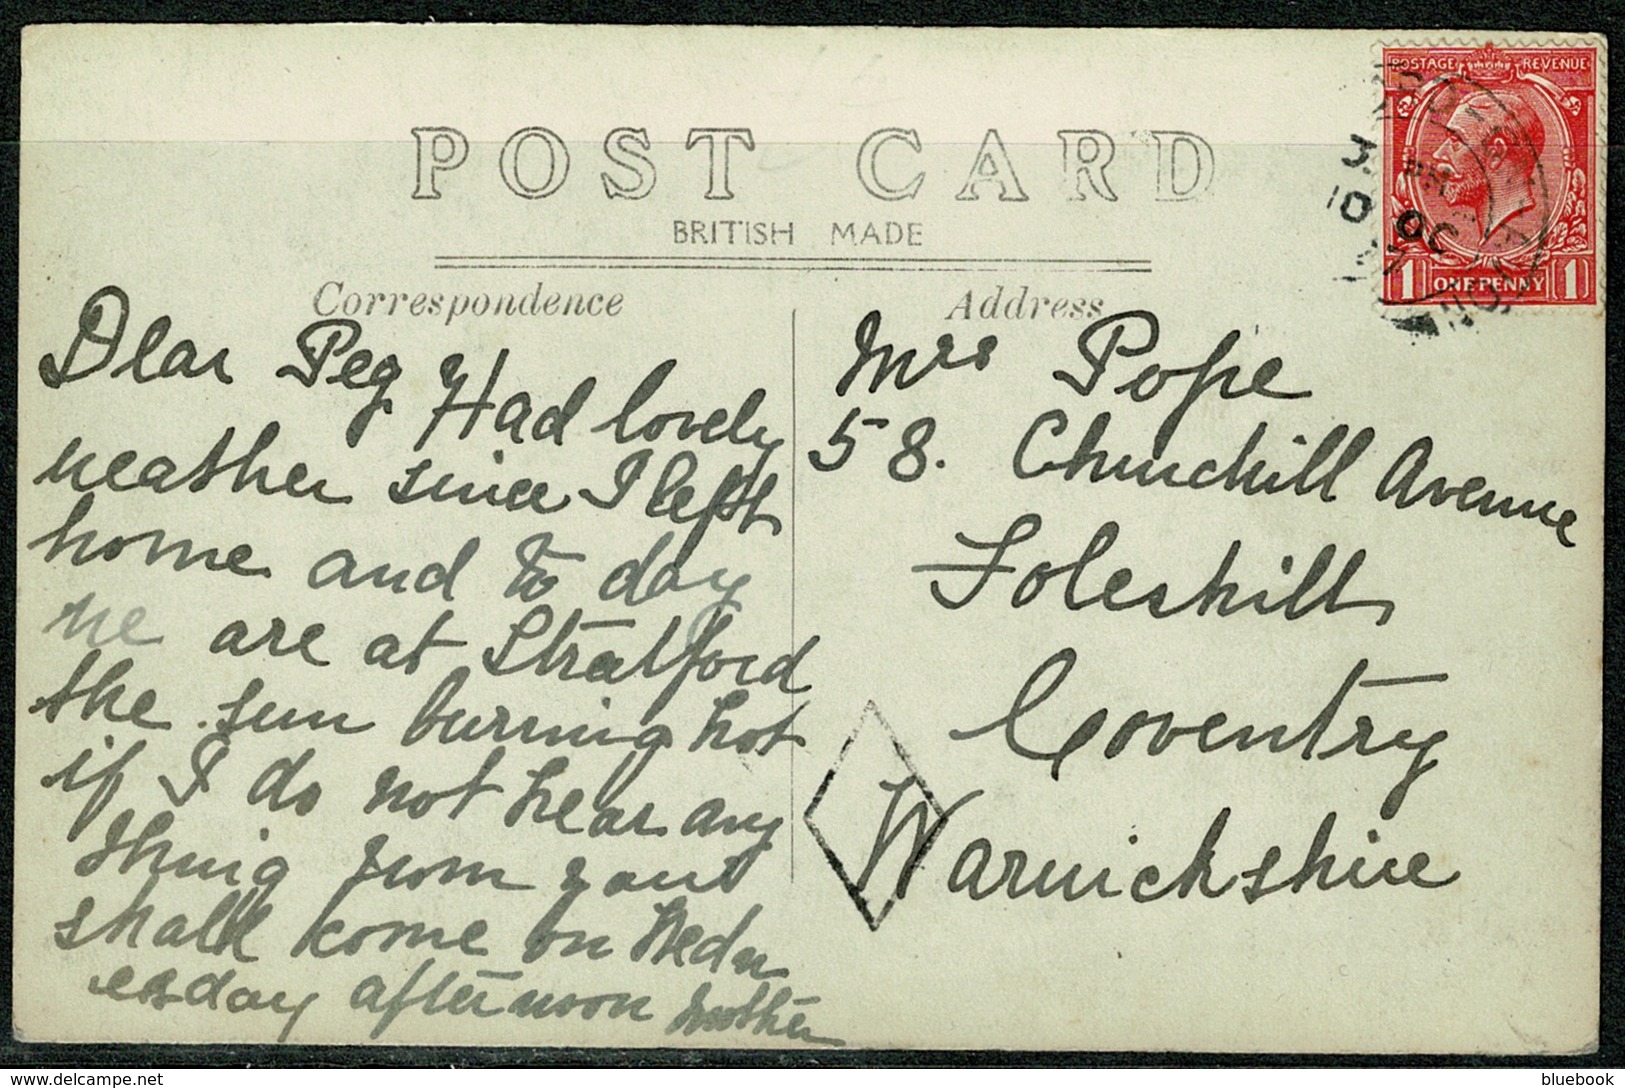 POST CARD
BRITISH MADE
Correspondence
Address
POSTAGE REVENUE
1 ONE PENNY 1
3. PM
10 OC
Dear Peg Had lovely
weather since I left
home and to day
we are at Stratford
the sun burning hot
if I do not hear any
thing from you I
shall come on Wedn
esday afternoon Mother
Mrs Pope
58. Churchill Avenue
Foleshill
Coventry
Warwickshire
delcampe.net
bluebook